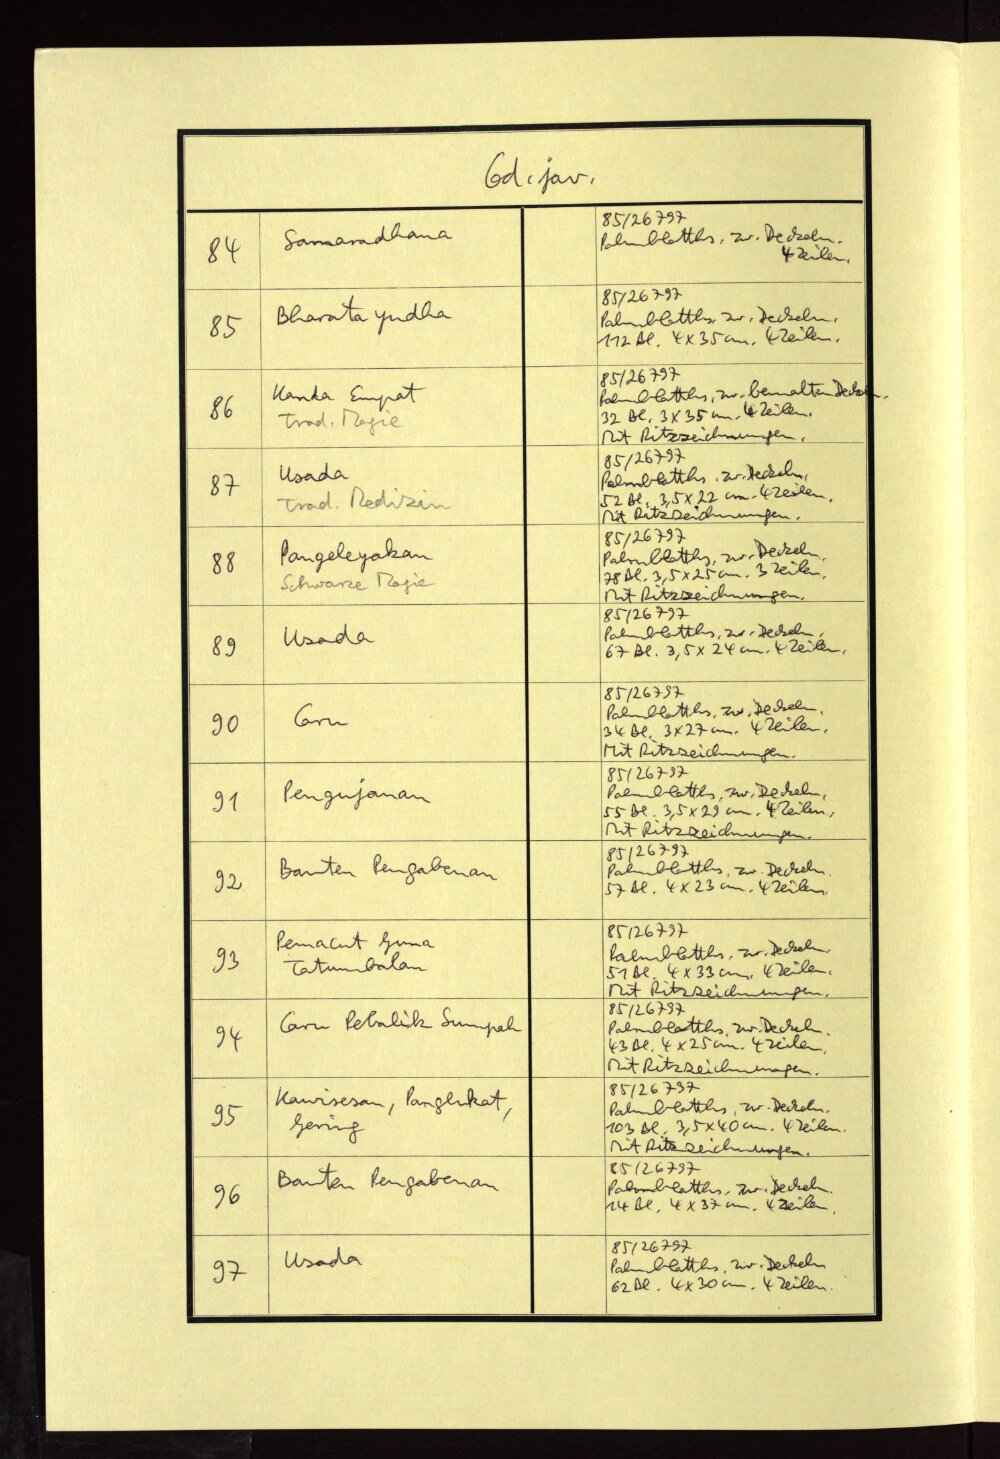 Cod. jav.
84
Samaradhana
85/26797
Palmblatths. zw. Deckeln.
4 Zeilen.
85
Bharata yudha
85/26797
Palmblatths. zw. Deckeln.
112 Bl. 4 x 35 cm. 4 Zeilen.
86
Kanda Empat
Trad. Magie
85/26797
Palmblatths. zw. bemalten Deckeln.
32 Bl. 3 x 35 cm. 4 Zeilen.
Mit Ritzzeichnungen.
87
Usada
Trad. Medizin
85/26797
Palmblatths. zw. Deckeln.
52 Bl. 3,5 x 22 cm. 4 Zeilen.
Mit Ritzzeichnungen.
88
Pangeleyakan
Schwarze Magie
85/26797
Palmblatths. zw. Deckeln.
78 Bl. 3,5 x 25 cm. 3 Zeilen.
Mit Ritzzeichnungen.
89
Usada
85/26797
Palmblatths. zw. Deckeln.
67 Bl. 3,5 x 24 cm. 4 Zeilen.
90
Caru
85/26797
Palmblatths. zw. Deckeln.
34 Bl. 3 x 27 cm. 4 Zeilen.
Mit Ritzzeichnungen.
91
Pengujanan
85/26797
Palmblatths. zw. Deckeln.
55 Bl. 3,5 x 29 cm. 4 Zeilen.
Mit Ritzzeichnungen.
92
Banten Pengabenan
85/26797
Palmblatths. zw. Deckeln.
57 Bl. 4 x 23 cm. 4 Zeilen.
93
Pemacut Guna
Tatumbalan
85/26797
Palmblatths. zw. Deckeln.
51 Bl. 4 x 33 cm. 4 Zeilen.
Mit Ritzzeichnungen.
94
Caru Pebalik Sumpah
85/26797
Palmblatths. zw. Deckeln.
43 Bl. 4 x 25 cm. 4 Zeilen.
Mit Ritzzeichnungen.
95
Kawisesan, Panglukat,
Gering
85/26797
Palmblatths. zw. Deckeln.
103 Bl. 3,5 x 40 cm. 4 Zeilen.
Mit Ritzzeichnungen.
96
Banten Pengabenan
85/26797
Palmblatths. zw. Deckeln.
14 Bl. 4 x 37 cm. 4 Zeilen.
97
Usada
85/26797
Palmblatths. zw. Deckeln
62 Bl. 4 x 30 cm. 4 Zeilen.